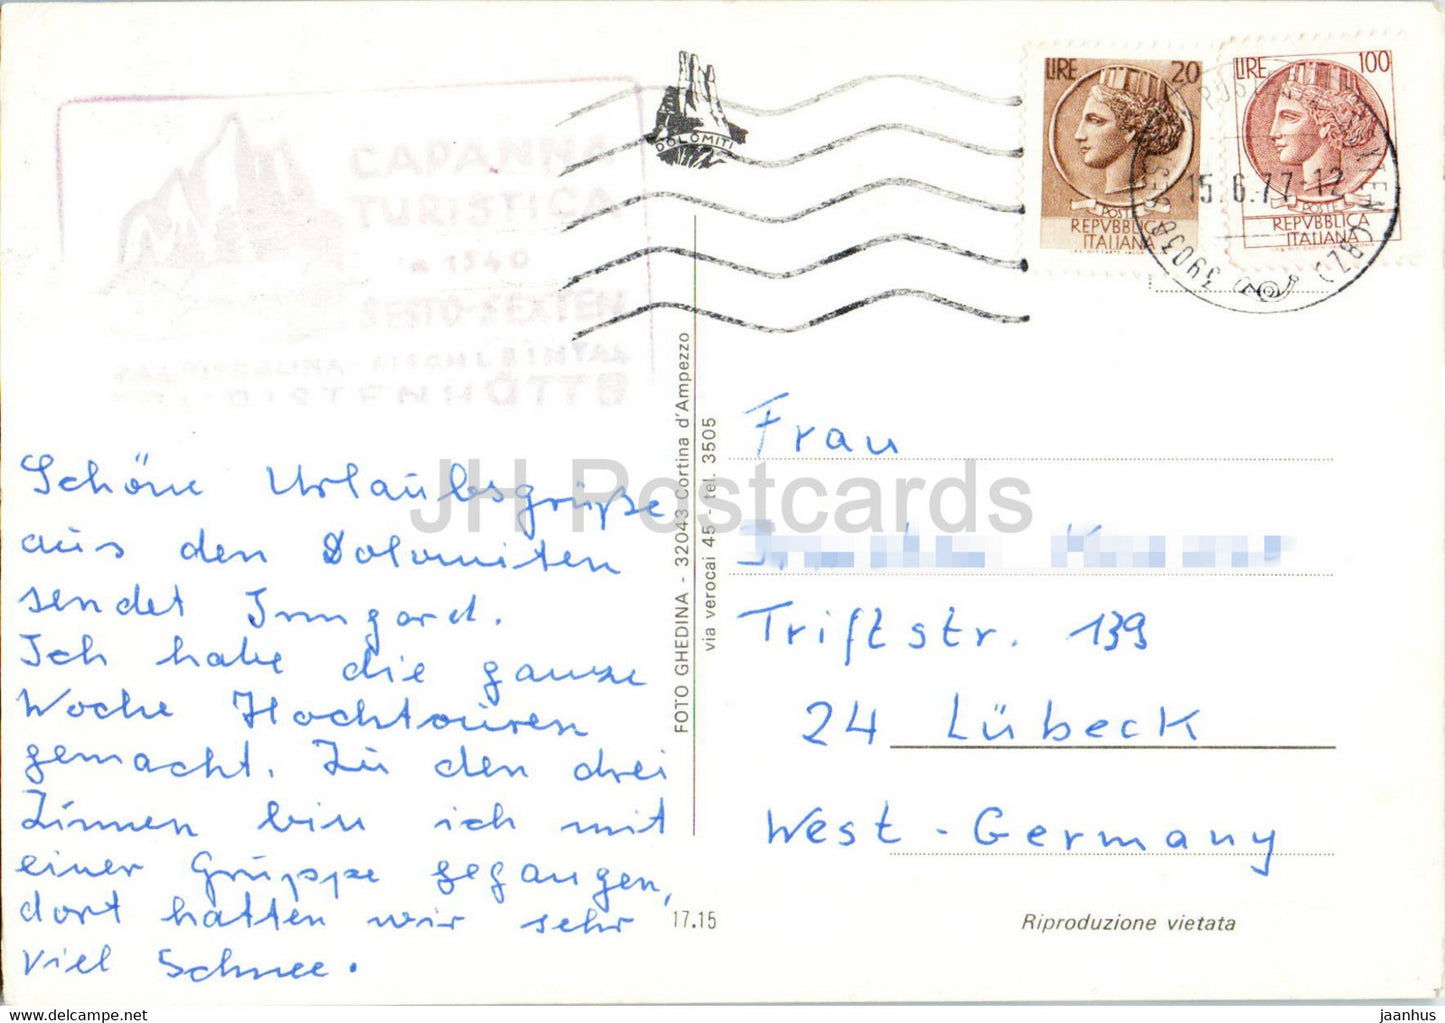 CAPANNA
TURISTICA
1540
SESTO-SEXTEN
FISCHLEINTAL
DOLOMITI
LIRE 20
POSTE
REPVBBLICA
ITALIANA
LIRE 100
POSTE
REPVBBLICA
ITALIANA
15.6.77.12
39030
(BZ)
Schöne Urlaubsgrüße
aus den Dolomiten
sendet Irmgard.
Ich habe die ganze
Woche Hochtouren
gemacht. Zu den drei
Zinnen bin ich mit
einer Gruppe gegangen,
dort hatten wir sehr
viel Schnee.
FOTO GHEDINA - 32043 Cortina d'Ampezzo
via verocai 45 - tel. 3505
17.15
Frau
Triftstr. 139
24 Lübeck
West-Germany
Riproduzione vietata
JH Postcards
www.delcampe.net
jaanhus